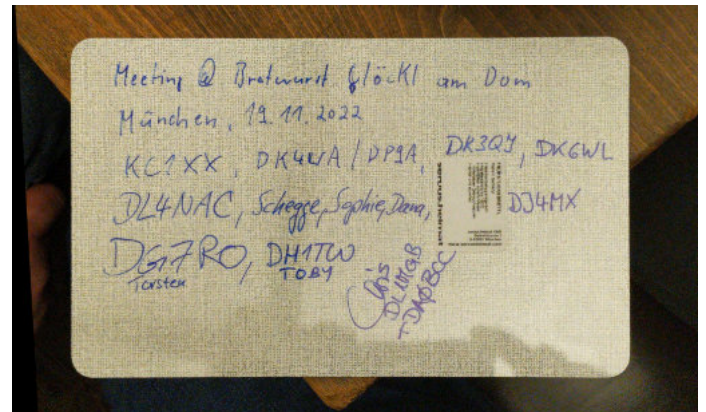 Meeting @ Bratwurst Glöckl am Dom
München, 19.11.2022
KC1XX, DK4WA / DP9A, DK3QJ, DK6WL
DL4NAC, Schegge, Sophie, Dana, DJ4MX
DG7RO, DH1TW
Torsten TOBY
Chris
DL1MGB
+DAØBCC
servus.heimat